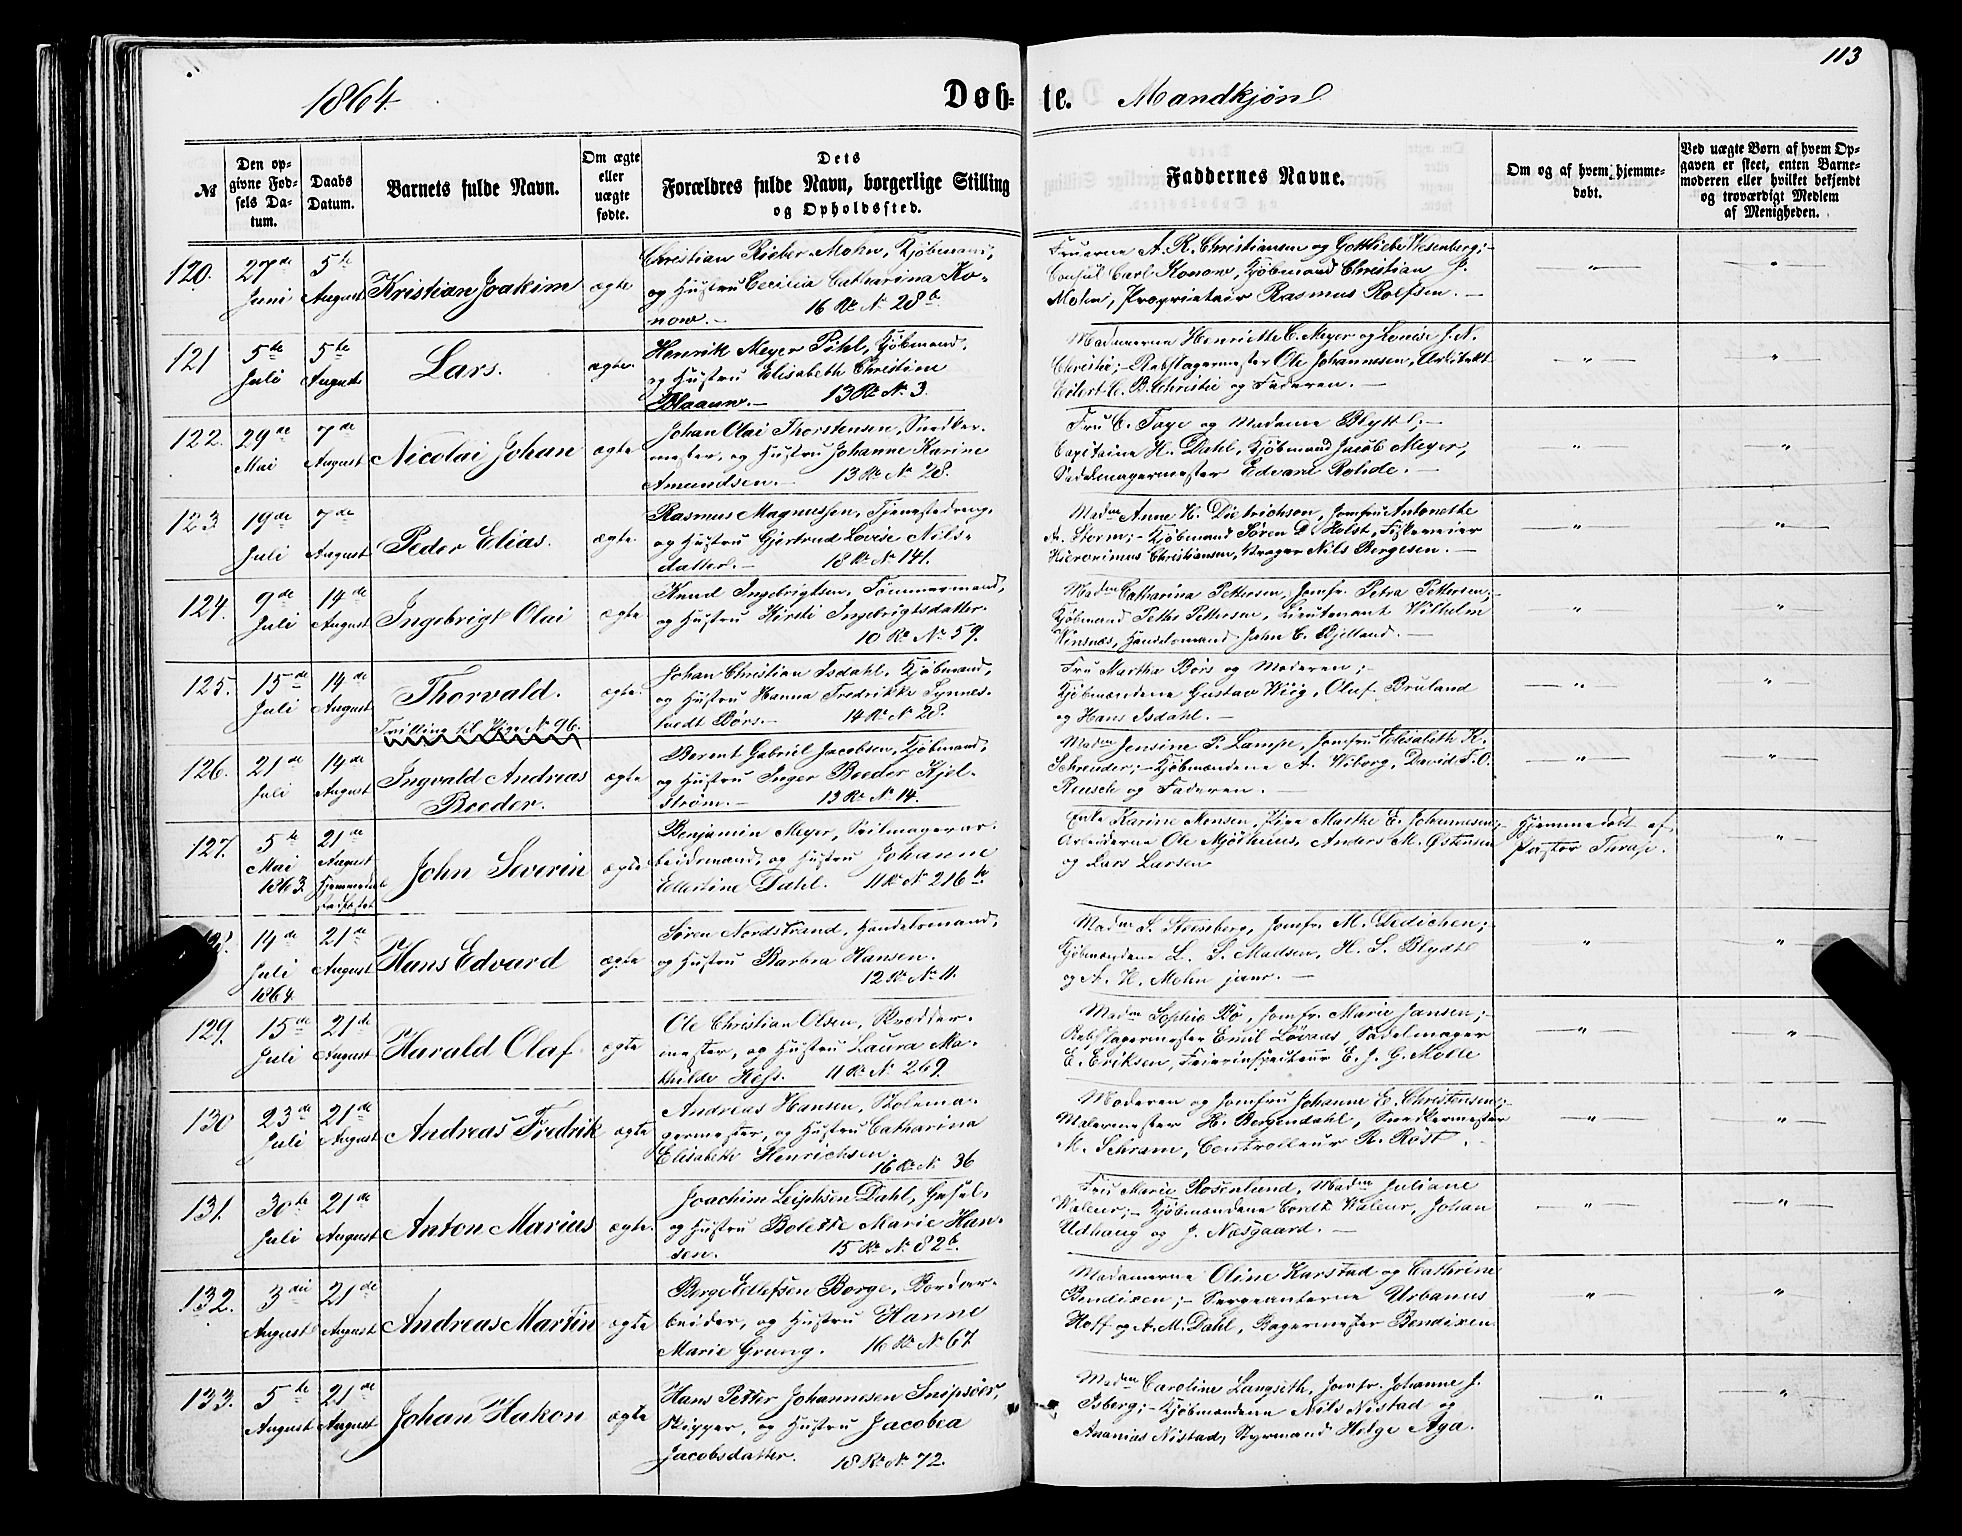 113
1864. Døb-te. Mandkjøn
№
Den op-
givne Fød-
sels Da-
tum.
Daabs
Datum.
Barnets fulde Navn.
Om ægte
eller
uægte
fødte.
Dets
Forældres fulde Navn, borgerlige Stilling
og Opholdssted.
Faddernes Navne.
Om og af hvem hjemme-
døbt.
Ved uægte Børn af hvem Op-
gaven er skeet, enten Barne-
moderen eller hvilket bekjendt
og troværdigt Medlem
af Menigheden.
120. 27de Juni 5te August Kristian Joakim ægte
Christian Rieber Mohn, Kjøbmand,
og Hustru Cecilia Catharina Ko-
now.- 16 Rd N. 28b
Fruerne A. R. Christiansen og Gottliebe Wesenberg;-
Consul Carl Konow, Kjøbmand Christian J.
Mohn, Proprietair Rasmus Rolfsen.-
121 5te Juli 5te August Lars. ægte.
Henrik Meyer Pihl, Kjøbmand,
og Hustru Elisabeth Christine
Blaauw.- 13 Rd N. 3.
Madamerne Henriette C. Meyer og Lovise J. A.
Christie;- Rebslagermester Ole Johannesen, Arkitekt
Eilert C. B. Christie og Faderen.-
122. 29de Mai 7de August Nicolai Johan ægte
Johan Olai Thorstensen, Snedker-
mester, og Hustru Johanne Karine
Amundsen.- 13 Rd N. 28.
Fru C. Faye og Madame Blytt;-
Capitaine H. Dahl, Kjøbmand Jacob Meyer,
Sadelmagermester Edvard Rohde.-
123 19de Juli 7de August Peder Elias. ægte.
Rasmus Magnussen, Tjenestedreng,
og Hustru Gjertrud Lovise Nils-
datter.- 18 Rd N. 141.
Madm Anne H. Didrichson, Jomfru Antonette
A. Storm;- Kjøbmand Søren D. Holst, Fiskereier
Hieronimus Christiansen, Vrager Nils Børgesen.-
124. 9de Juli 14de August Ingebrigt Olai ægte
Knud Ingebrigtsen, Tømmermand,
og Hustru Kirsti Ingebrigtsdatter.
10 Rd N. 59.
Madm Catharina Pettersen, Jomfr. Petra Pettersen;-
Kjøbmand Peths Pettersen, Lieutenant Wilhelm
Winsnæs, Handelsmand John C. Kjelland.-
125. 15de Juli 14de August Thorvald. ægte.
Tvilling til Pige N. 96.
Johan Christian Isdahl, Kjøbmand,
og Hustru Hanna Fredrikke Synnes-
tvedt Børs.- 14 Rd N. 28.
Fru Martha Børs og Moderen;-
Kjøbmændene Gustav Wiig, Oluf Bruland
og Hans Isdahl.-
126. 21de Juli 14de August Ingvald Andreas
Boeder. ægte
Berent Gabriel Jacobsen, Kjøbmand,
og Hustru Inger Boeder Kjel-
strøm.- 13 Rd N. 14.
Madm Jensine P. Lampe, Jomfru Elisabeth K.
Schreuder;- Kjøbmændene A. Wiborg, David F. O.
Reusch og Faderen.-
127. 5te Mai 1863. 21de August John Severin ægte
Benjamin Meyer, Seilmagerar-
beidsmand, og Hustru Johanne
Ellertine Dahl. 11 Rd N. 216
Enke Karine Monsen, Pige Marthe E. Johannesen;-
Arbeiderne Ole Mjøthuus, Anders M. Østensen
og Lars Larsen
Hjemmedøbt af
Pastor Thrap.
14de Juli 1864. 21de August Hans Edvard ægte
Søren Nordstrand, Handelsmand,
og Hustru Barbra Hansen.
12 Rd N. 11.
Madm S. Steinberg, Jomfr. M. Didichen;
Kjøbmændene L. S. Madsen, H. S. Blydt
og A. H. Mohn junr.-
129. 15de Juli 21de August Harald Olaf ægte
Ole Christian Olsen, Skrædder-
mester, og Hustru Laura Ma-
thilde Hess. 11 Rd N. 269.
Madm Sophie Bø, Jomfr. Marie Jansen;-
Rebslagermester Emil Løvaas, Sadelmager
E. Eriksen, Feierinspecteur E. J. G. Molle
130 23de Juli 21de August Andreas Fredrik ægte
Andreas Hansen, Stolema-
germester, og Hustru Catharina
Elisabeth Henrichsen. 16 Rd N. 36
Moderen og Jomfru Johanne E. Christensen;-
Malermester H. Bergendahl, Snedkermester
M. Schram, Controlleur R. Røst.
131. 30te Juli 21de August Anton Marius ægte.
Joachim Leiphsen Dahl, Gesel,
og Hustru Bolette Marie Han-
sen. 15 Rd N. 82b.
Fru Marie Rosenlund, Madm Juliane
Waleur;- Kjøbmændene Cordt Waleur, Johan
Udhaug og J. Næsgaard.-
132. 3die August 21de August Andreas Martin ægte
Berge Ellefsen Borge, Bordar-
beider, og Hustru Hanne
Marie Grung. 16 Rd N. 67.
Madamerne Oline Karstad og Cathrine
Bendixen;- Sergeanterne Urbanus
Hoff og A. M. Dahl, Bagermester Bendixen
133. 5te August 21de August Johan Hakon ægte
Hans Petter Johannesen Snipsøer,
Skipper, og Hustru Jacobea
Jacobsdatter. 18 Rd N. 72.
Madm Caroline Langseth, Jomfr. Johanne J.
Isberg;- Kjøbmændene Nils Nistad og
Ananias Nistad, Styrmand Helge Aga.